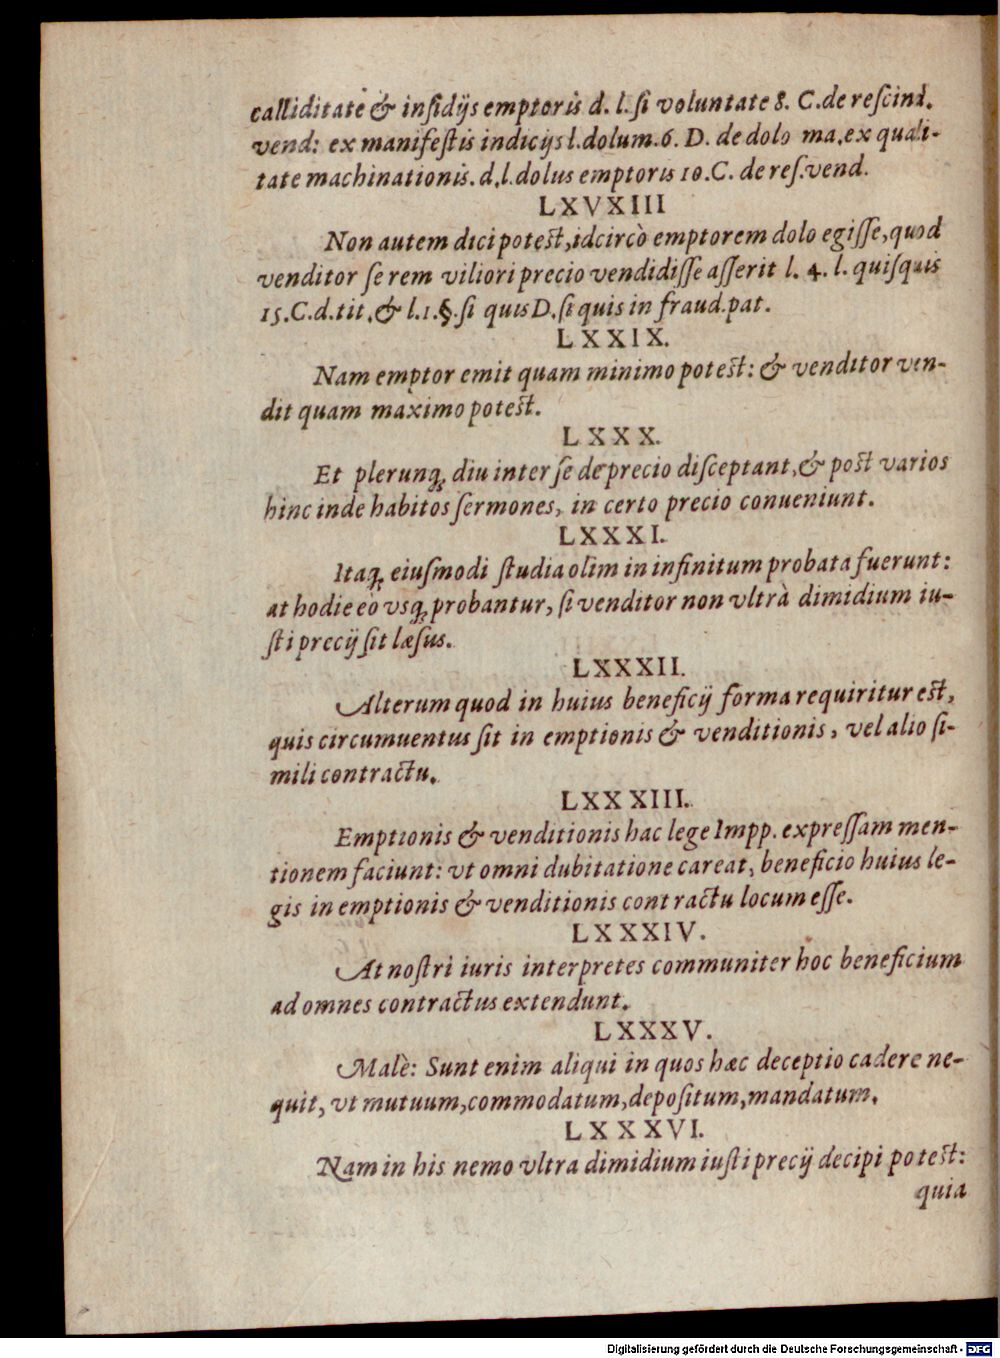 calliditate & insidijs emptoris d. l. si voluntate 8. C. de rescind.
vend: ex manifestis indicijs l. dolum. 6. D. de dolo ma. ex quali-
tate machinationis. d. l. dolus emptoris 10. C. de res. vend.
LXVXIII
Non autem dici potest, idcircò emptorem dolo egisse, quod
venditor se rem viliori precio vendidisse asserit l. 4. l. quisquis
15. C. d. tit. & l. 1. §. si quis D. si quis in fraud. pat.
LXXIX.
Nam emptor emit quam minimo potest: & venditor ven-
dit quam maximo potest.
LXXX.
Et plerunq; diu inter se de precio disceptant, & post varios
hinc inde habitos sermones, in certo precio conueniunt.
LXXXI.
Itaq; eiusmodi studia olim in infinitum probata fuerunt:
at hodie eò vsq; probantur, si venditor non vltrà dimidium iu-
sti precij sit læsus.
LXXXII.
Alterum quod in huius beneficij forma requiritur est,
quis circumuentus sit in emptionis & venditionis, vel alio si-
mili contractu.
LXXXIII.
Emptionis & venditionis hac lege Impp. expressam men-
tionem faciunt: vt omni dubitatione careat, beneficio huius le-
gis in emptionis & venditionis contractu locum esse.
LXXXIV.
At nostri iuris interpretes communiter hoc beneficium
ad omnes contractus extendunt.
LXXXV.
Malè: Sunt enim aliqui in quos hæc deceptio cadere ne-
quit, vt mutuum, commodatum, depositum, mandatum.
LXXXVI.
Nam in his nemo vltra dimidium iusti precij decipi potest:
quia
Digitalisierung gefördert durch die Deutsche Forschungsgemeinschaft - DFG